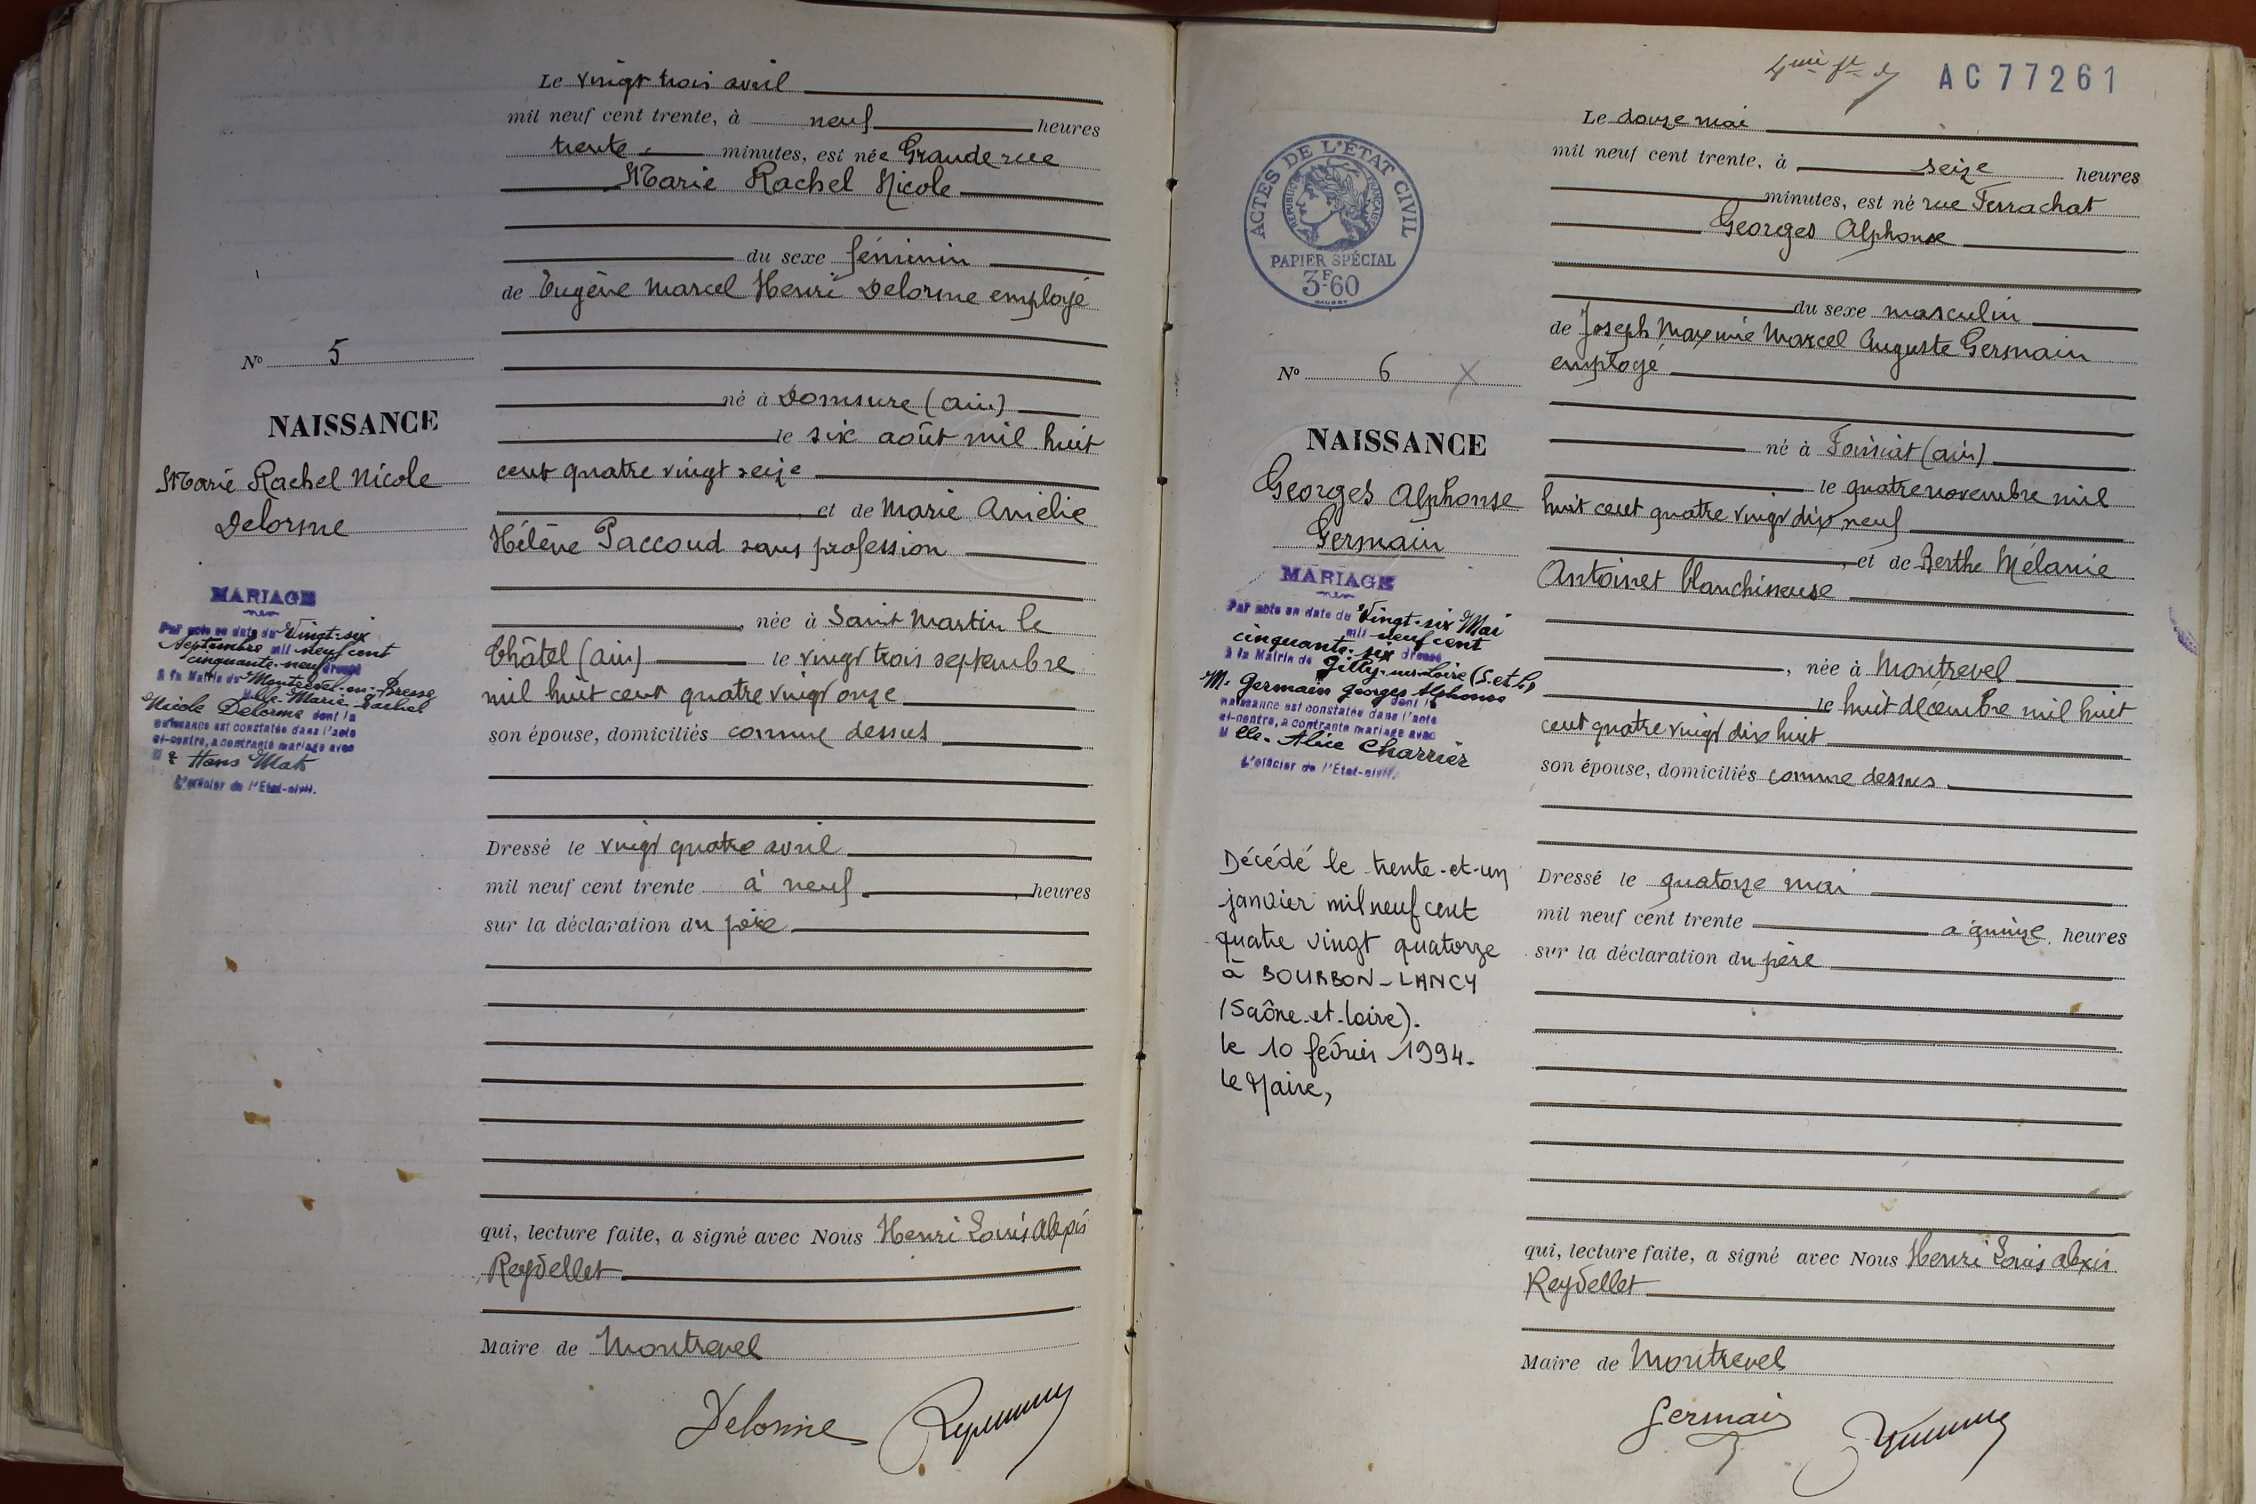 Le vingt trois avril
mil neuf cent trente, à neuf heures
trente minutes, est née Grande rue
Marie Rachel Nicole
du sexe féminin
de Eugène Marcel Henri Delorme employé
né à Domsure (ain)
le six août mil huit
cent quatre vingt seize
et de Marie Amélie
Hélène Paccoud sans profession
, née à Saint Martin le
Châtel (ain) le vingt trois septembre
mil huit cent quatre vingt onze
son épouse, domiciliés comme dessus
Dressé le vingt quatre avril
mil neuf cent trente à neuf , heures
sur la déclaration du père
qui, lecture faite, a signé avec Nous Henri Louis Alexis
Reydellet
Maire de Montrevel
Delorme
No 5
NAISSANCE
Marie Rachel Nicole
Delorme
MARIAGE
Par acte en date du Vingt-six
Septembre mil neuf cent
cinquante-neuf dressé
à la Mairie de Montrevel-en-Bresse
Mlle. Marie-Rachel
Nicole Delorme dont la
naissance est constatée dans l'acte
ci-contre, a contracté mariage avec
Hans Mak
L'officier de l'Etat-civil.
AC77261
Le douze mai
mil neuf cent trente, à seize heures
minutes, est né rue Ferrachat
Georges Alphonse
du sexe masculin
de Joseph Maxime Marcel Auguste Germain
employé
né à Foissiat (ain)
le quatre novembre mil
huit cent quatre vingt dix neuf
, et de Berthe Mélanie
Antoinet blanchisseuse
, née à Montrevel
le huit décembre mil huit
cent quatre vingt dix huit
son épouse, domiciliés comme dessus
Dressé le quatorze mai
mil neuf cent trente à quinze, heures
sur la déclaration du père
qui, lecture faite, a signé avec Nous Henri Louis Alexis
Reydellet
Maire de Montrevel
Germain
ACTES DE L'ÉTAT CIVIL
RÉPUBLIQUE FRANÇAISE
PAPIER SPÉCIAL
3F.60
No 6 X
NAISSANCE
Georges Alphonse
Germain
MARIAGE
Par acte en date du Vingt-six Mai
mil neuf cent
cinquante-six dressé
à la Mairie de Gilly-sur-Loire (S.et L)
M. Germain Georges Alphonse
dont la
naissance est constatée dans l'acte
ci-contre, a contracté mariage avec
Melle. Alice Charrier
L'officier de l'Etat-civil.
Décédé le trente-et-un
janvier mil neuf cent
quatre vingt quatorze
à BOURBON-LANCY
(Saône-et-Loire).
le 10 février 1994.
Le Maire,